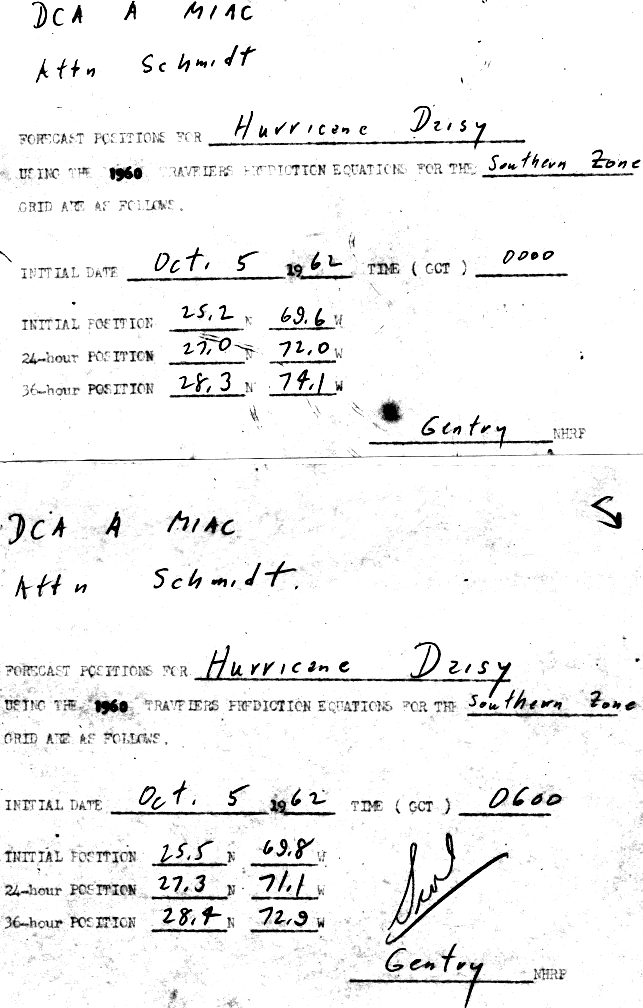 DCA A MIAC
Attn Schmidt
FORECAST POSITIONS FOR Hurricane Daisy
USING THE 1960 TRAVELERS PREDICTION EQUATIONS FOR THE Southern Zone
GRID ARE AS FOLLOWS.
INITIAL DATE Oct. 5 1962 TIME ( GCT ) 0000
INITIAL POSITION 25.2 N 69.6 W
24-hour POSITION 27.0 N 72.0 W
36-hour POSITION 28.3 N 74.1 W
Gentry NHRP
DCA A MIAC
Attn Schmidt.
FORECAST POSITIONS FOR Hurricane Daisy
USING THE 1960 TRAVELERS PREDICTION EQUATIONS FOR THE Southern Zone
GRID ARE AS FOLLOWS.
INITIAL DATE Oct. 5 1962 TIME ( GCT ) 0600
INITIAL POSITION 25.5 N 69.8 W
24-hour POSITION 27.3 N 71.1 W
36-hour POSITION 28.4 N 72.9 W
Gentry NHRP